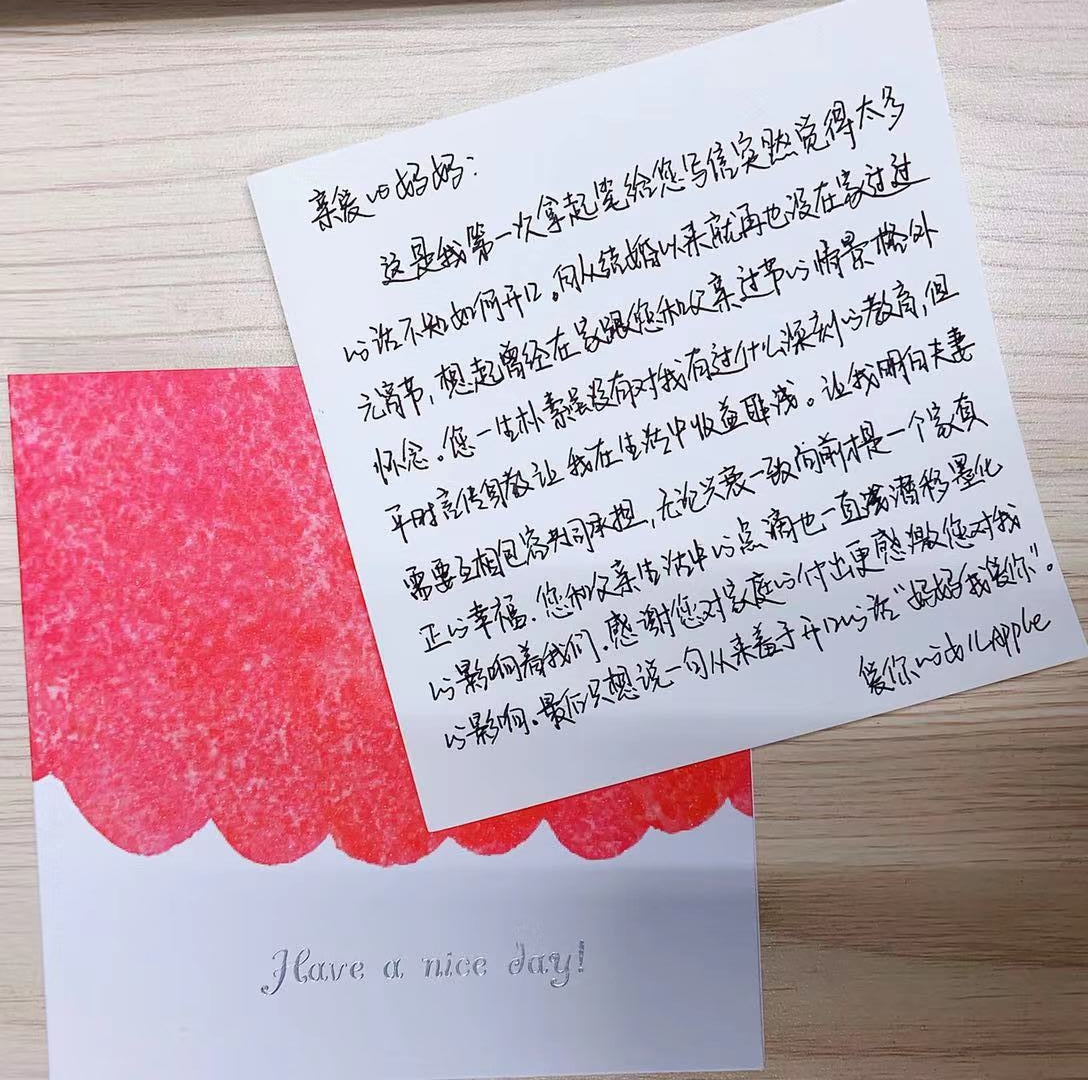 亲爱的妈妈:
这是我第一次拿起笔给您写信突然觉得太多
的话不知如何开口。自从结婚以来就再也没在家过过
元宵节,想起曾经在家跟您和父亲过节的情景格外
怀念。您一生朴素虽没有对我有过什么深刻的教育,但
平时言传身教让我在生活中收益匪浅。让我明白夫妻
需要互相包容共同承担,无论兴衰一致向前才是一个家真
正的幸福.您和父亲生活中的点滴也一直潜移墨化
的影响着我们.感谢您对家庭的付出更感激您对我
的影响.最后只想说一句从来羞于开口的话"妈妈我爱你"。
爱你的女儿Apple
Have a nice day!